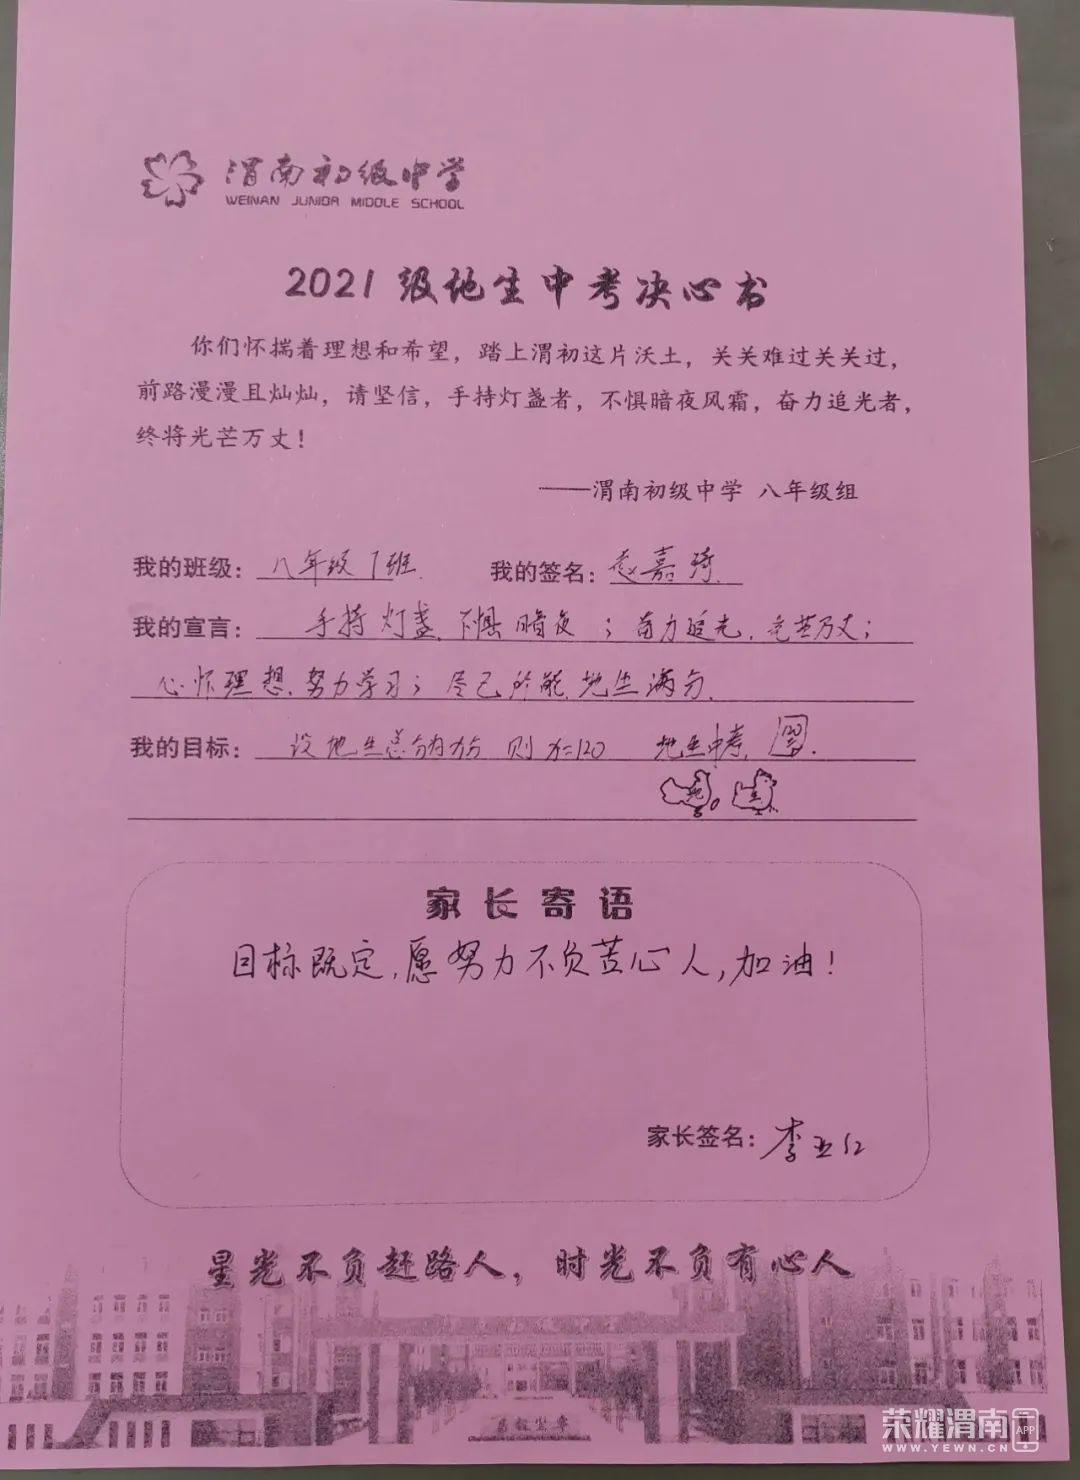 渭南初级中学
WEINAN JUNIOR MIDDLE SCHOOL
2021级地生中考决心书
你们怀揣着理想和希望，踏上渭初这片沃土，关关难过关关过，
前路漫漫且灿灿，请坚信，手持灯盏者，不惧暗夜风霜，奋力追光者，
终将光芒万丈！
——渭南初级中学 八年级组
我的班级：八年级1班 我的签名：赵嘉琦
我的宣言：手持灯盏，不惧暗夜；奋力追光，光芒万丈；
心怀理想，努力学习；尽己所能，地生满分。
我的目标：设地生总分为x分 则x=120 地生中考，
地 生
家长寄语
目标既定，愿努力不负苦心人，加油！
家长签名：李亚红
星光不负赶路人，时光不负有心人
荣耀渭南 APP
WWW.YEWN.CN